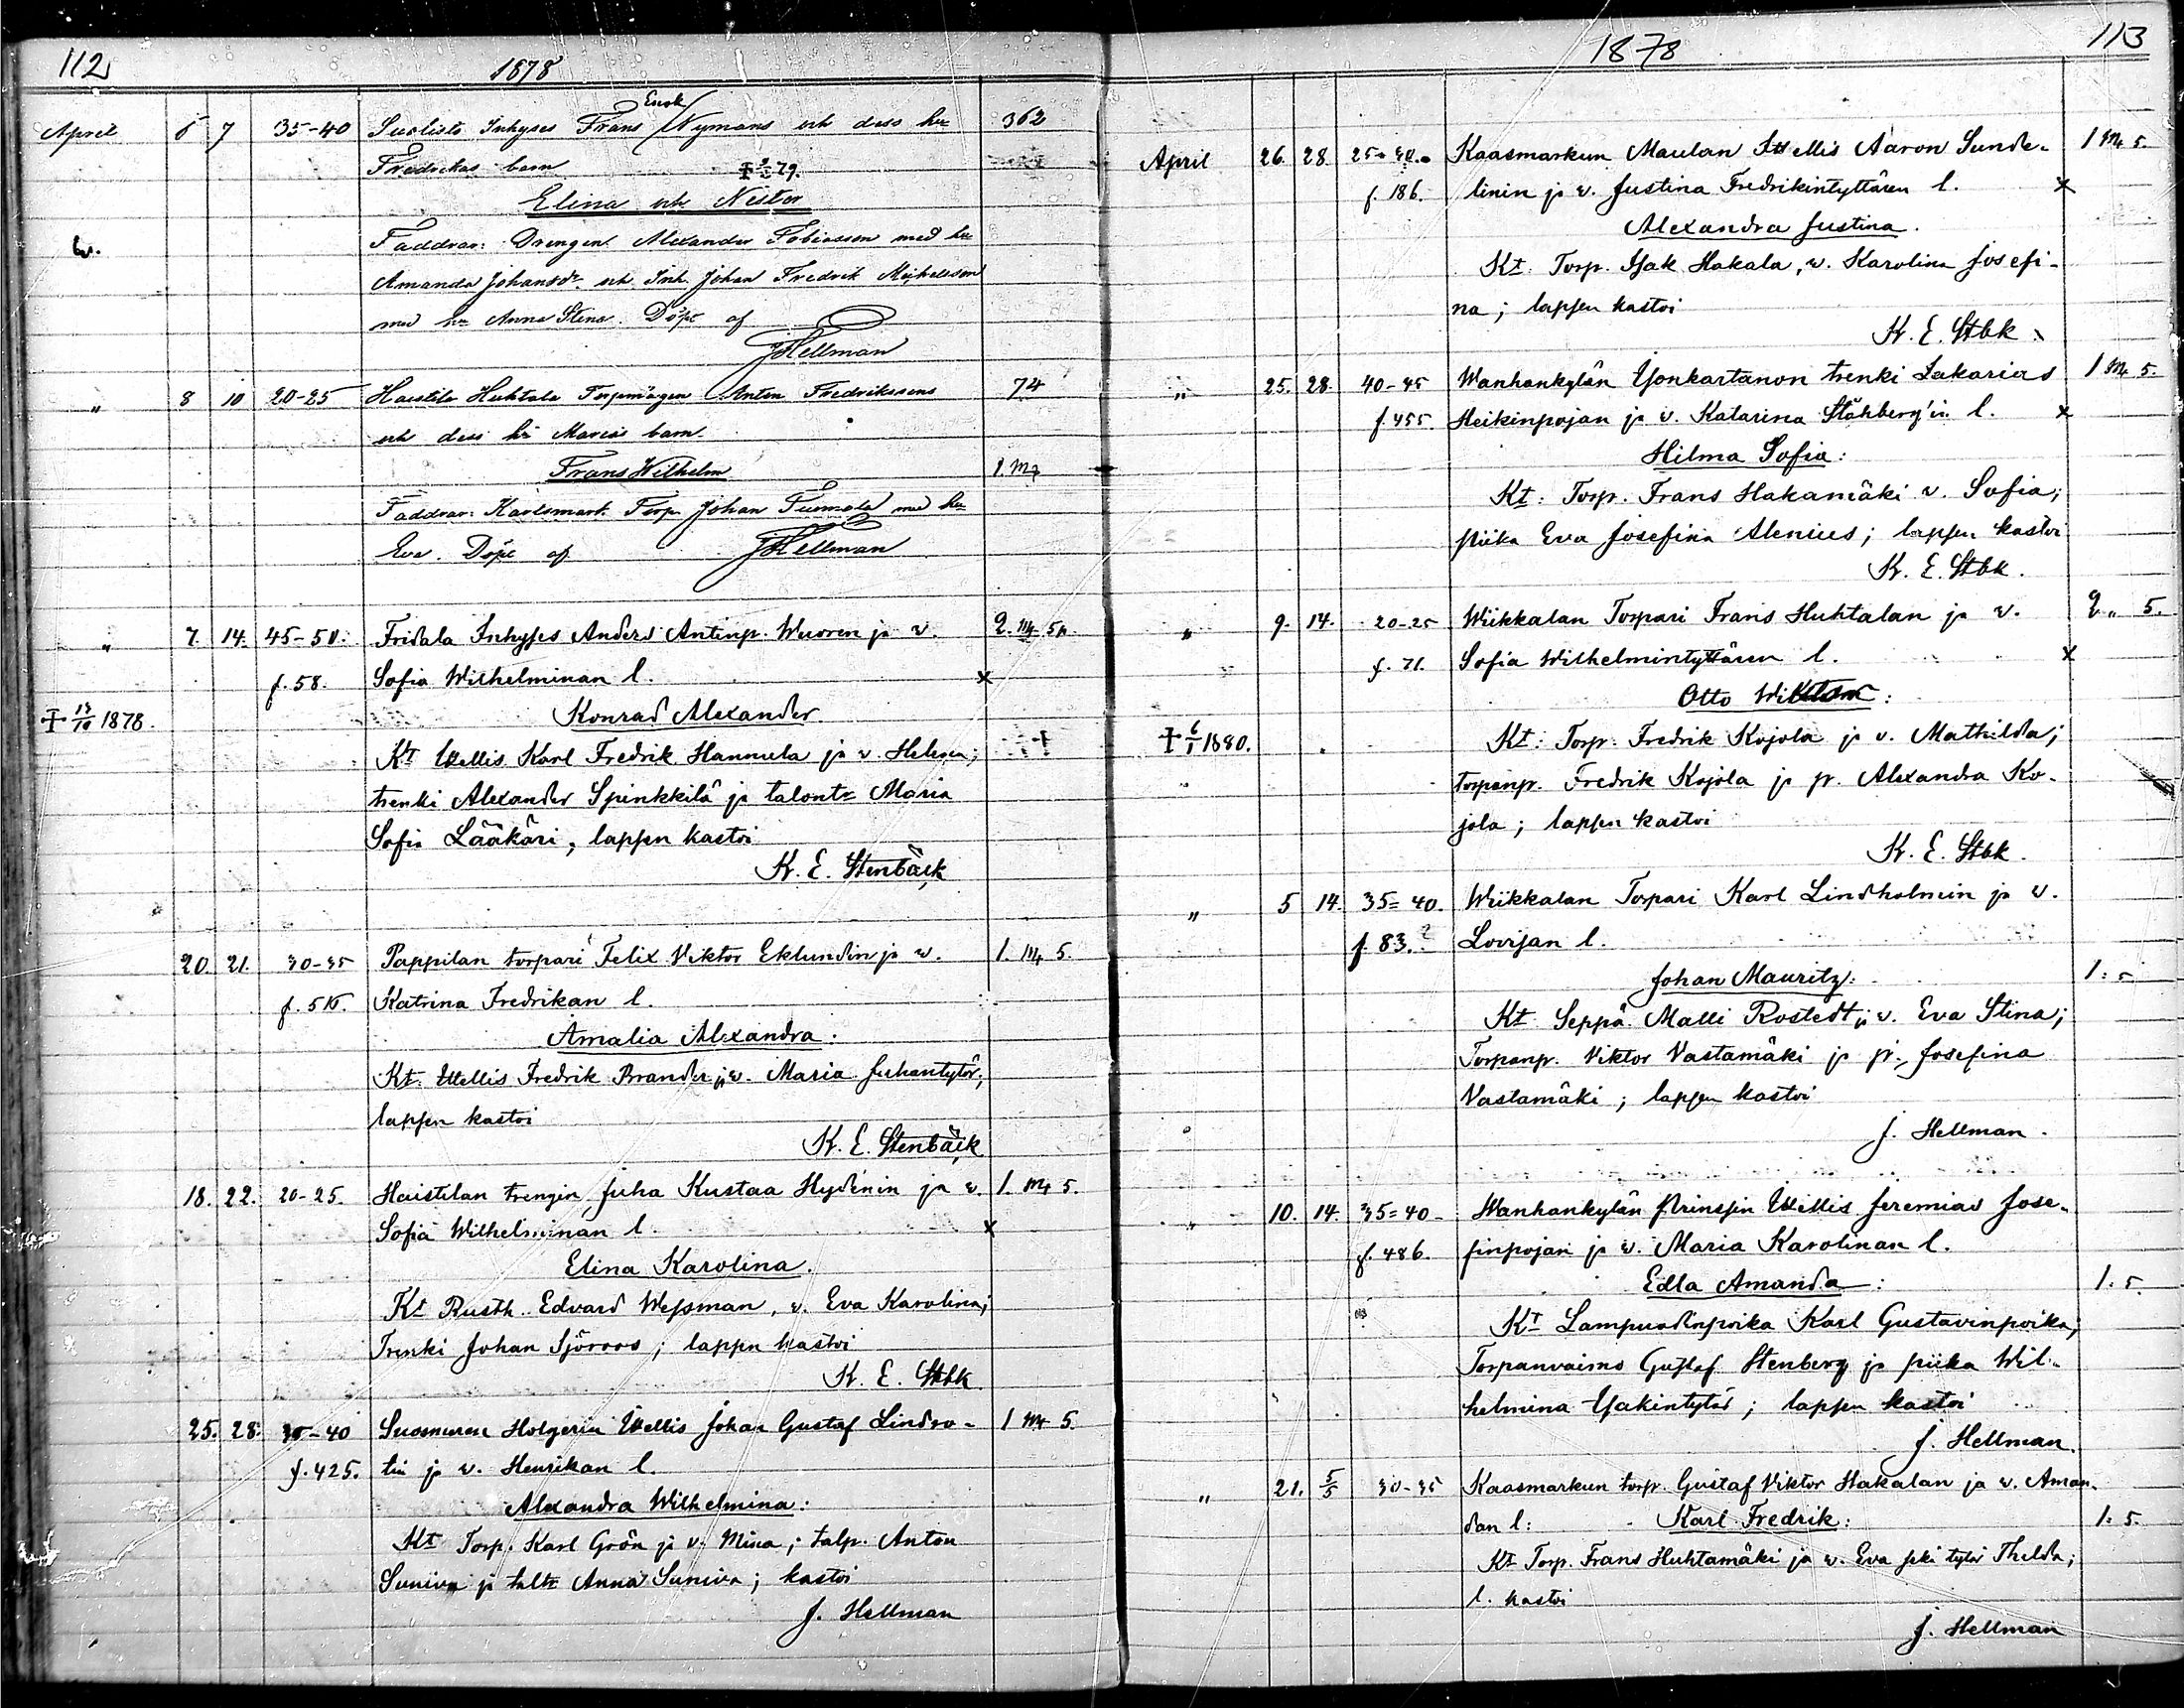 112
1878
Enok
April 6 7 35-40 Suolisto Inhyses Frans Nymans och dess hu 362
Fredrikas barn 79.
Elina och Nestor
Faddrar: Drengen Alexander Tobiasson med hu
Amanda Johansdr. och Inh. Johan Fredrik Michelsson
med hu Anna Stina. Döpt af
JHellman
„ 8 10 20-25 Haistila Huhtala Torpmågen Anton Fredrikssons 74
och dess hu Marias barn.
Frans Wilhelm 1 M
Faddrar: Karlsmark Torp. Johan Tuomola med hu
Eva. Döpt af JHellman
„ 7. 14. 45-50. Fridala Inhyses Anders Antinp. Wuoren ja v. 2. M 5
f. 58. Sofia Wilhelminan l. x
† 13/10 1878. Konrad Alexander.
Kt Itellis Karl Fredrik Hannula ja v. Helena;
trenki Alexander Spinkkilä ja talont= Maria
Sofia Lääkäri, lapsen kastoi
K. E. Stenbäck
20. 21. 30-35 Pappilan torpari Felix Viktor Eklundin ja v. 1. M 5.
Katrina Fredrikan l.
Amalia Alexandra:
Kt. Itellis Fredrik Brander ja v. Maria Juhantytär;
lapsen kastoi
K. E. Stenbäck
18. 22. 20-25. Haistilan trengin Juha Kustaa Hydénin ja v. 1. M 5.
Sofia Wilhelminan l. x
Elina Karolina.
Kt Rusth. Edvard Wessman, v. Eva Karolina;
Trenki Johan Sjöroos; lapsen kastoi
K. E. Stbk
25. 28. 35-40 Suosmeren Holgerin Itellis Johan Gustaf Lindro- 1 M 5.
f. 425. tin ja v. Henrikan l.
Alexandra Wilhelmina:
Kt Torp. Karl Grön ja v. Mina; talp. Anton
Suniva ja taltr Anna Suniva; kastoi
J. Hellman
1878
113
April 26. 28. 25-30. Kaasmarkun Maulan Itellis Aaron Sunde- 1 M 5.
f. 186. linin ja v. Justina Fredrikintyttären l. x
Alexandra Justina.
Kt. Torp. Isak Hakala, v. Karolina Josefi-
na; lapsen kastoi
K. E. Stbk
„ 25. 28. 40-45 Wanhankylän Yonkartanon trenki Sakarias 1 M 5.
f. 455. Heikinpojan ja v. Katarina Ståhberg'in l. x
Hilma Sofia:
Kt: Torp. Frans Hakamäki v. Sofia;
piika Eva Josefina Alenius; lapsen kastoi
K. E. Stbk.
„ 9. 14. 20-25 Wiikkalan Torpari Frans Huhtalan ja v. 2 „ 5.
f. 71. Sofia Wilhelmintyttären l. x
Otto Wiktor:
† 6/1 1880. Kt: Torp. Fredrik Kojola ja v. Mathilda;
torpanp. Fredrik Kojola ja p. Alexandra Ko-
jola; lapsen kastoi
K. E. Stbk.
„ 5 14. 35=40. Wiikkalan Torpari Karl Lindholmin ja v.
f. 83. Lovisan l.
Johan Mauritz: 1: 5
Kt Seppä Malli Rostedt ja v. Eva Stina;
Torpanp. Viktor Vastamäki ja p. Josefina
Vastamäki; lapsen kastoi
J. Hellman.
„ 10. 14. 35=40- Wanhankylän Prinssin Itellis Jeremias Jose-
f. 486. finpojan ja v. Maria Karolinan l.
Edla Amanda: 1. 5.
Kt Lampuodinpoika Karl Gustavinpoika;
Torpanvaimo Gustaf Stenberg ja piika Wil-
helmina Isakintytär; lapsen kastoi
J. Hellman.
„ 21. 5/5 30-35 Kaasmarkun torp. Gustaf Viktor Hakalan ja v. Aman-
dan l: Karl Fredrik: 1. 5.
Kt Torp. Frans Huhtamäki ja v. Eva tytär Thelda;
l. kastoi
J. Hellman